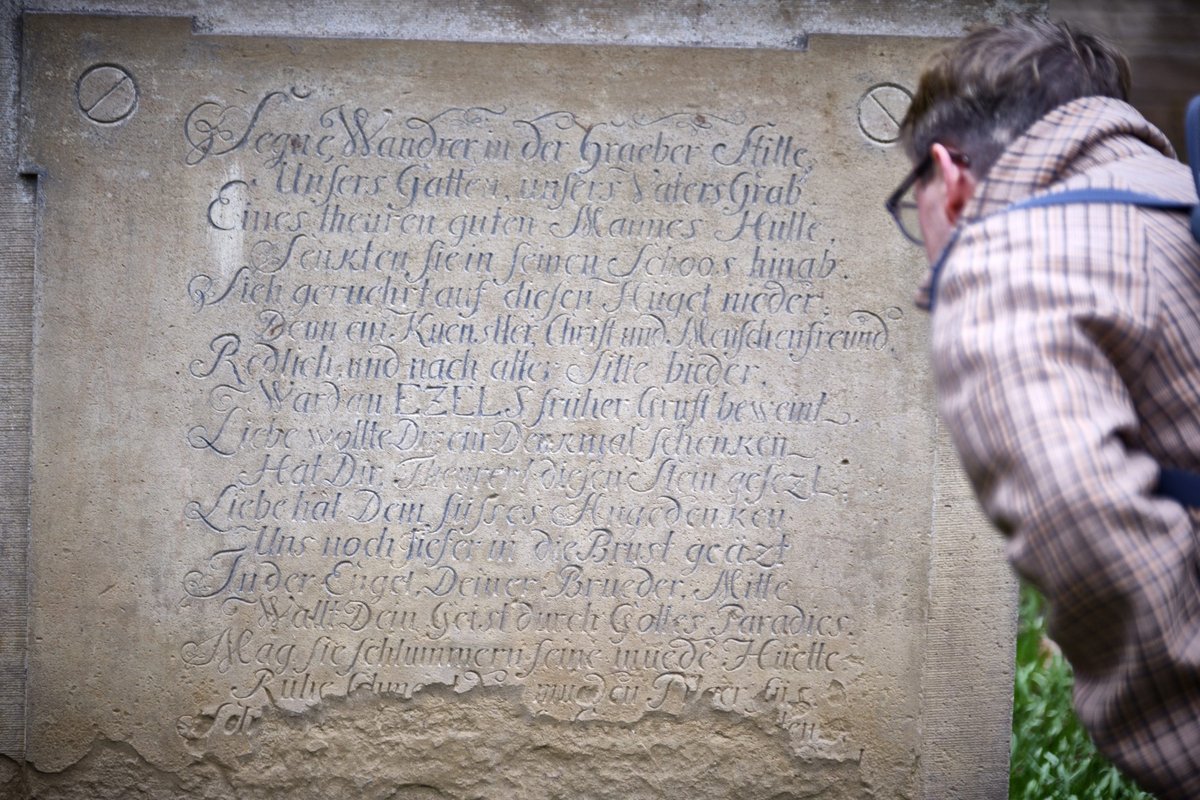 Segne, Wandrer in der Graeber Stille,
Unsers Gatten, unsers Vaters Grab.
Eines theuren guten Mannes Hülle,
Senkten sie in seinen Schoos hinab.
Sieh gerührt auf diesen Hügel nieder;
Denn ein Kuenstler, Christ und Menschenfreund,
Redlich, und nach alter Sitte bieder,
Ward an EZELS früher Gruft beweint.
Liebe wollte Dir ein Denkmal schenken
Hat Dir, Theurer! diesen Stein gesezt,
Liebe hat Dein süsses Angedenken
Uns noch tiefer in die Brust geäzt
In der Engel, Deiner Brueder, Mitte
Wallt Dein Geist durch Gottes Paradies.
Mag sie schlummern seine muede Huette
Ruhe